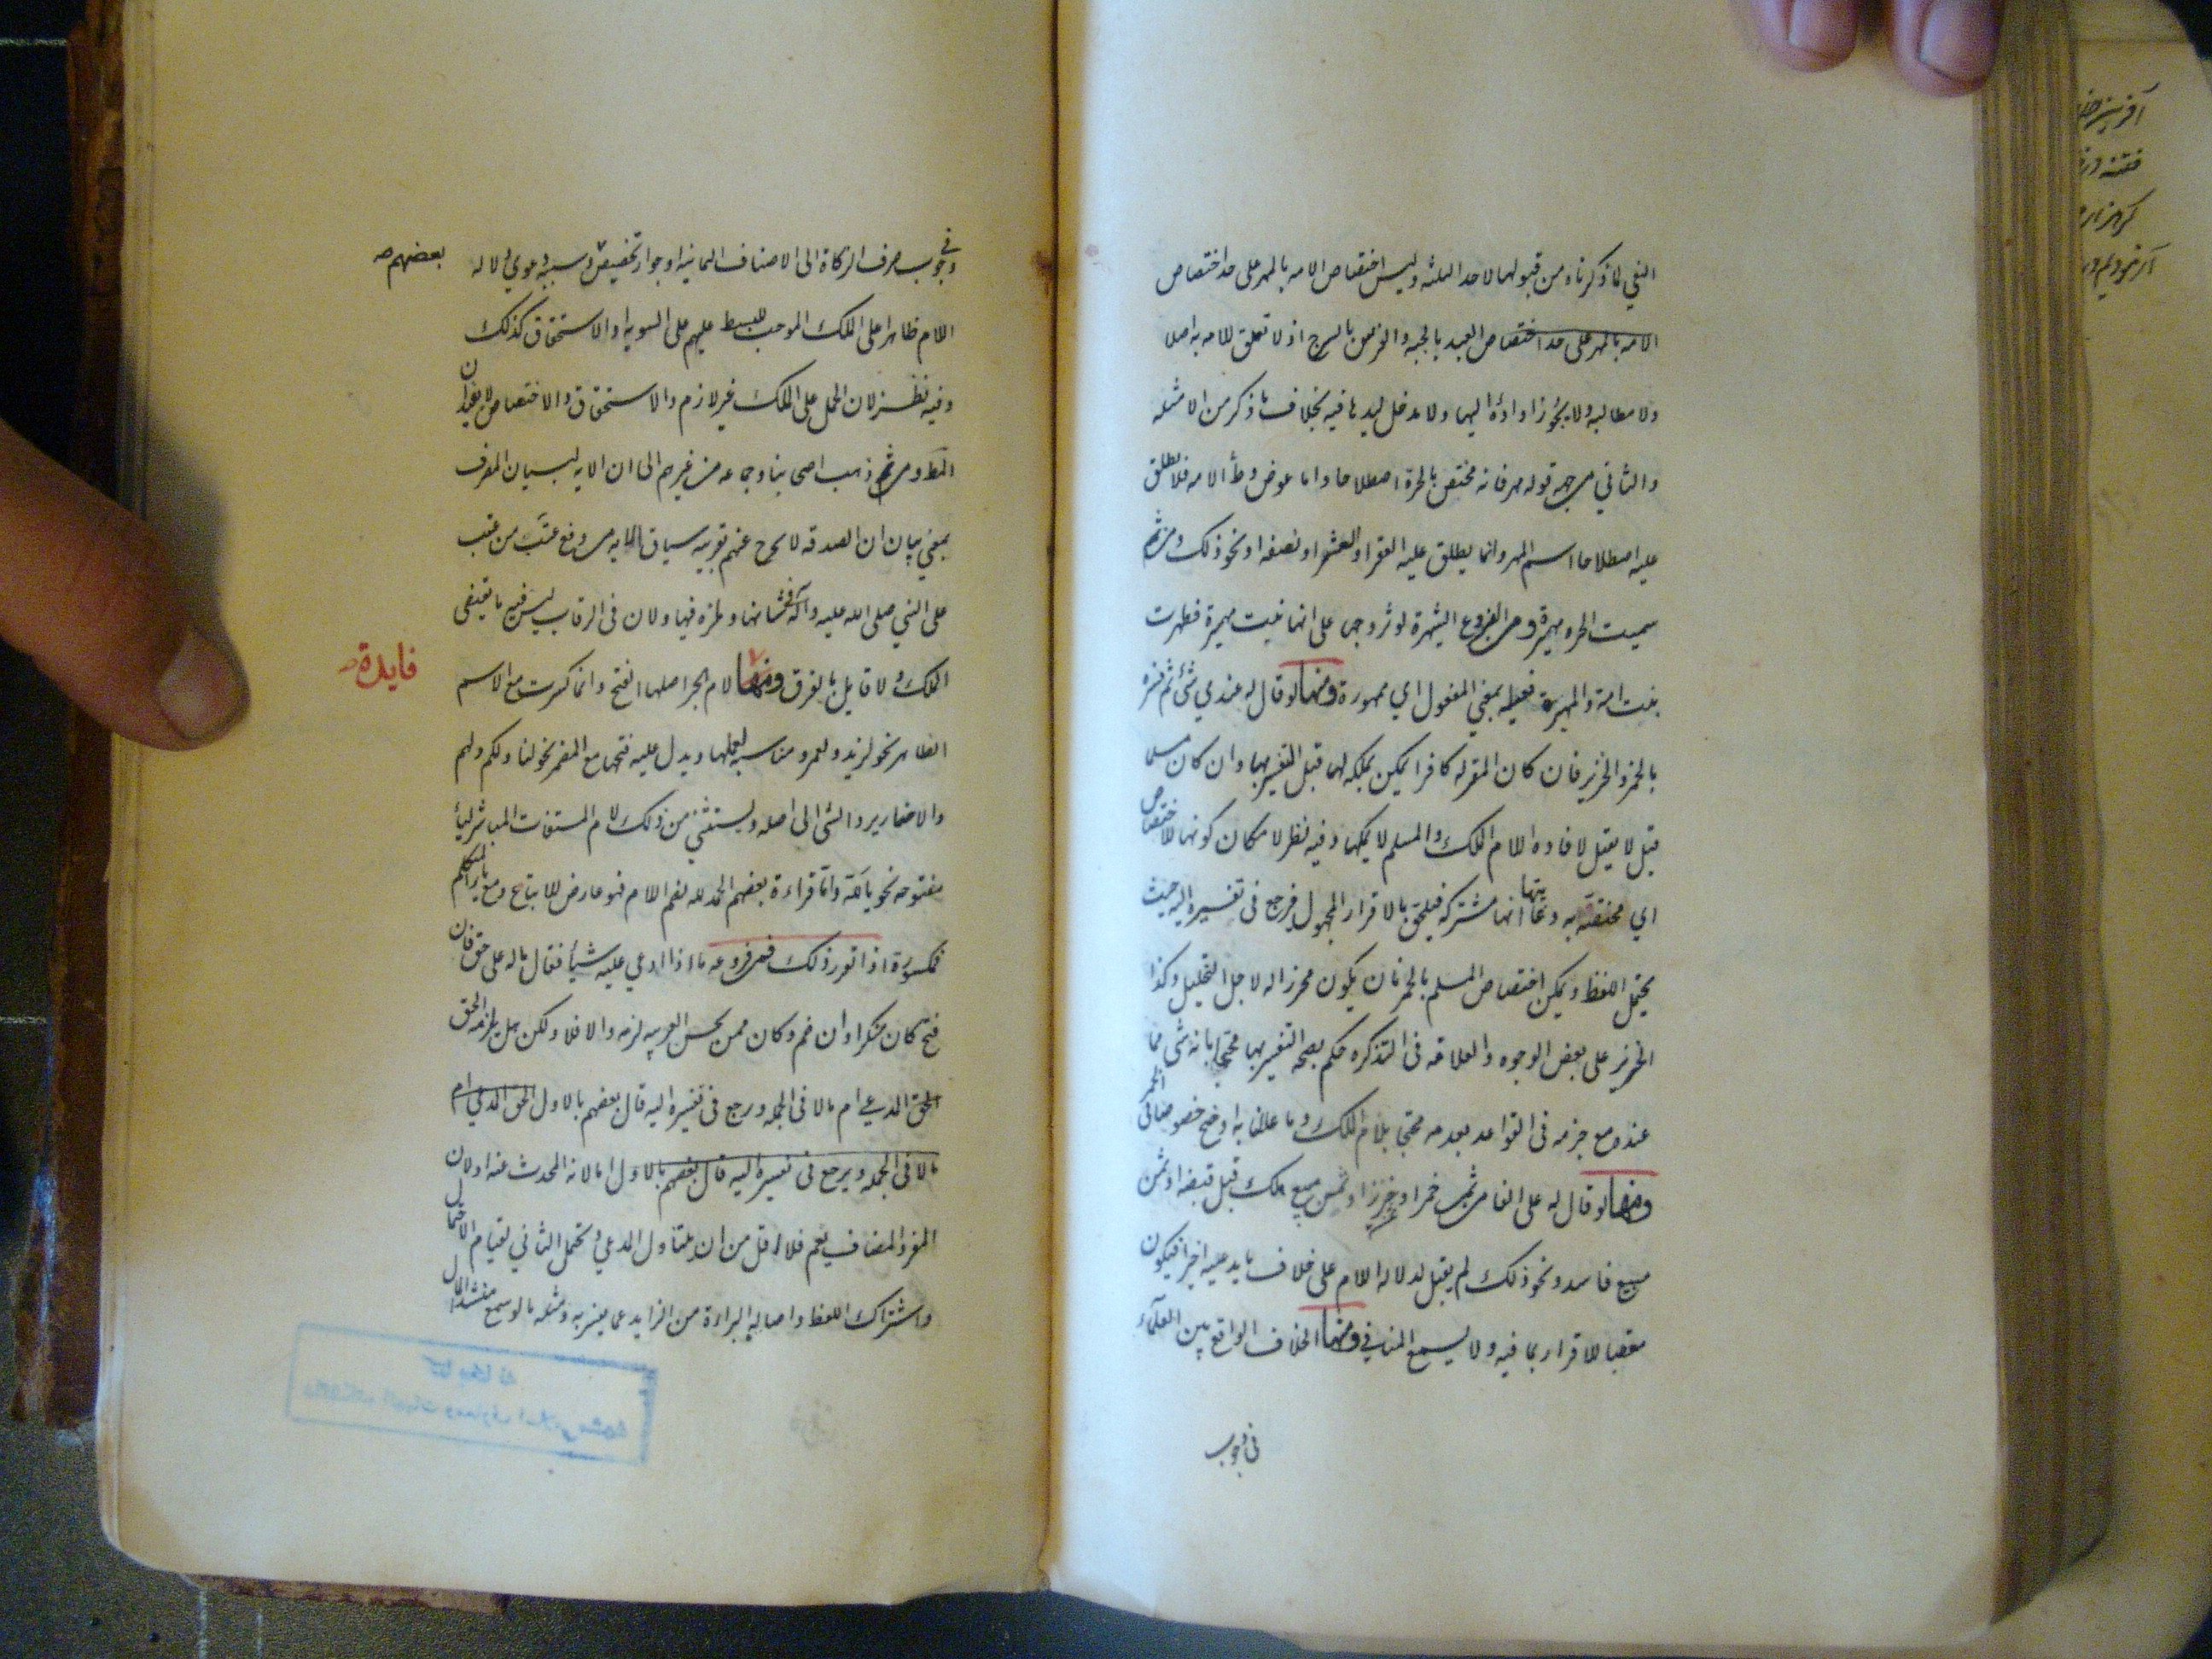 النفي لما ذكرناه من قبولها لاحد الثلثه وليس اختصاص الامه بالمهر على حد اختصاص
الامه بالمهر على حد اختصاص العبد بالجبه والفرس بالسرج اذ لا تعلق للامه به اصلا
ولا مطالبه ولا يجوز اداؤه اليها ولا مدخل ليدها فيه بخلاف ما ذكر من الامثله
والثاني من جهة قوله مهر فانه مختص بالحرة اصطلاحا واما عوض وطأ الامه فلا يطلق
عليه اصطلاحا اسم المهر وانما يطلق عليه العقر او العشر او نصفه او نحو ذلك ومن ثم
سميت الحره مهيرة ومن الفروع الشهيرة لو تزوجها على انها بنت مهيرة فظهرت
بنت امة والمهيرة فعيله بمعني المفعول اي ممهورة ومنها لو قال له عندي شئ ثم فسره
بالخمر والخنزير فان كان المقر له كافرا يمكن تملكه لهما قبل التفسير بهما وان كان مسلما
قيل لا يقبل لافاده اللام الملك والمسلم لا يملكها وفيه نظر لامكان كونها للاختصاص
اي مختصة به وغايتها انها مشتركه فيلحق بالاقرار المجهول فيرجع في تفسيره اليه حيث
يحتمل اللفظ ويمكن اختصاص المسلم بالخمر بان يكون محرزا له لاجل التخليل وكذا
الخنزير على بعض الوجوه والعلامه في التذكره حكم بصحه التفسير بهما محتجا بانه شئ مما
عنده مع جزمه في القواعد بعدمه محتجا بلام الملك وما عللنا به اوضح خصوصا في الخمر
ومنها لو قال له على الف من ثمن خمر او خنزير او ثمن مبيع هلك قبل قبضه او ثمن
مبيع فاسد ونحو ذلك لم يقبل لدلاله اللام على خلاف ما يدعيه اخيرا فيكون
معقبا للاقرار بما فيه ولا يسمع المنافي ومنها الخلاف الواقع بين العلمآء
في وجوب
في وجوب صرف الزكاة الى الاصناف الثمانيه او جواز تخصيص وسببه دعوي دلاله بعضهم صح
اللام ظاهرا على الملك الموجب للبسط عليهم على السويه او الاستحقاق كذلك
وفيه نظر لان الحمل على الملك غير لازم والاستحقاق والاختصاص لا يفيدان
البسط ومن ثم ذهب اصحابنا وجماعه من غيرهم الى ان الايه لبيان المصرف
بمعني بيان ان الصدقه لا تخرج عنهم بقرينه سياق الايه من دفع عتب من عتب
على النبي صلى الله عليه وآله في شانها ولمزه فيها ولان في الرقاب ليس فيه ما يقتضي
الملك ولا قايل بالفرق ومنها لام الجر اصلها الفتح وانما كسرت مع الاسم
فايدة
الظاهر نحو لزيد ولعمرو مناسبه لعملها ويدل عليه فتحها مع المضمر نحو لنا ولكم ولهم
والاضمار يرد الشئ الى اصله ويستثني من ذلك لام المستغاث المباشر ليا
مفتوحه نحو يا لله واما قراءة بعضهم الحمد لله بضم اللام فهو عارض للاتباع ومع ياء المتكلم
فمكسورة اذا تقرر ذلك فمن فروعه ما اذا ادعي عليه شيأ فقال ما له على حق فان
فتح كان منكرا وان ضم وكان ممن يحسن العربيه لزمه والا فلا ولكن هل يلزمه الحق
الحق المدعي ام مالا في الجمله ورجع في تفسيره اليه قال بعضهم بالاول الحق المدعي ام
مالا في الجمله ويرجع في تفسيره اليه قال بعضهم بالاول اما لانه المحدث عنه او لان
المفرد المضاف يعم فلا اقل من ان يتناول المدعي ويحتمل الثاني لقيام الاحتمال
واشتراك اللفظ واصاله البراءة من الزايد عما يفسر به ومثله ما لو سمع